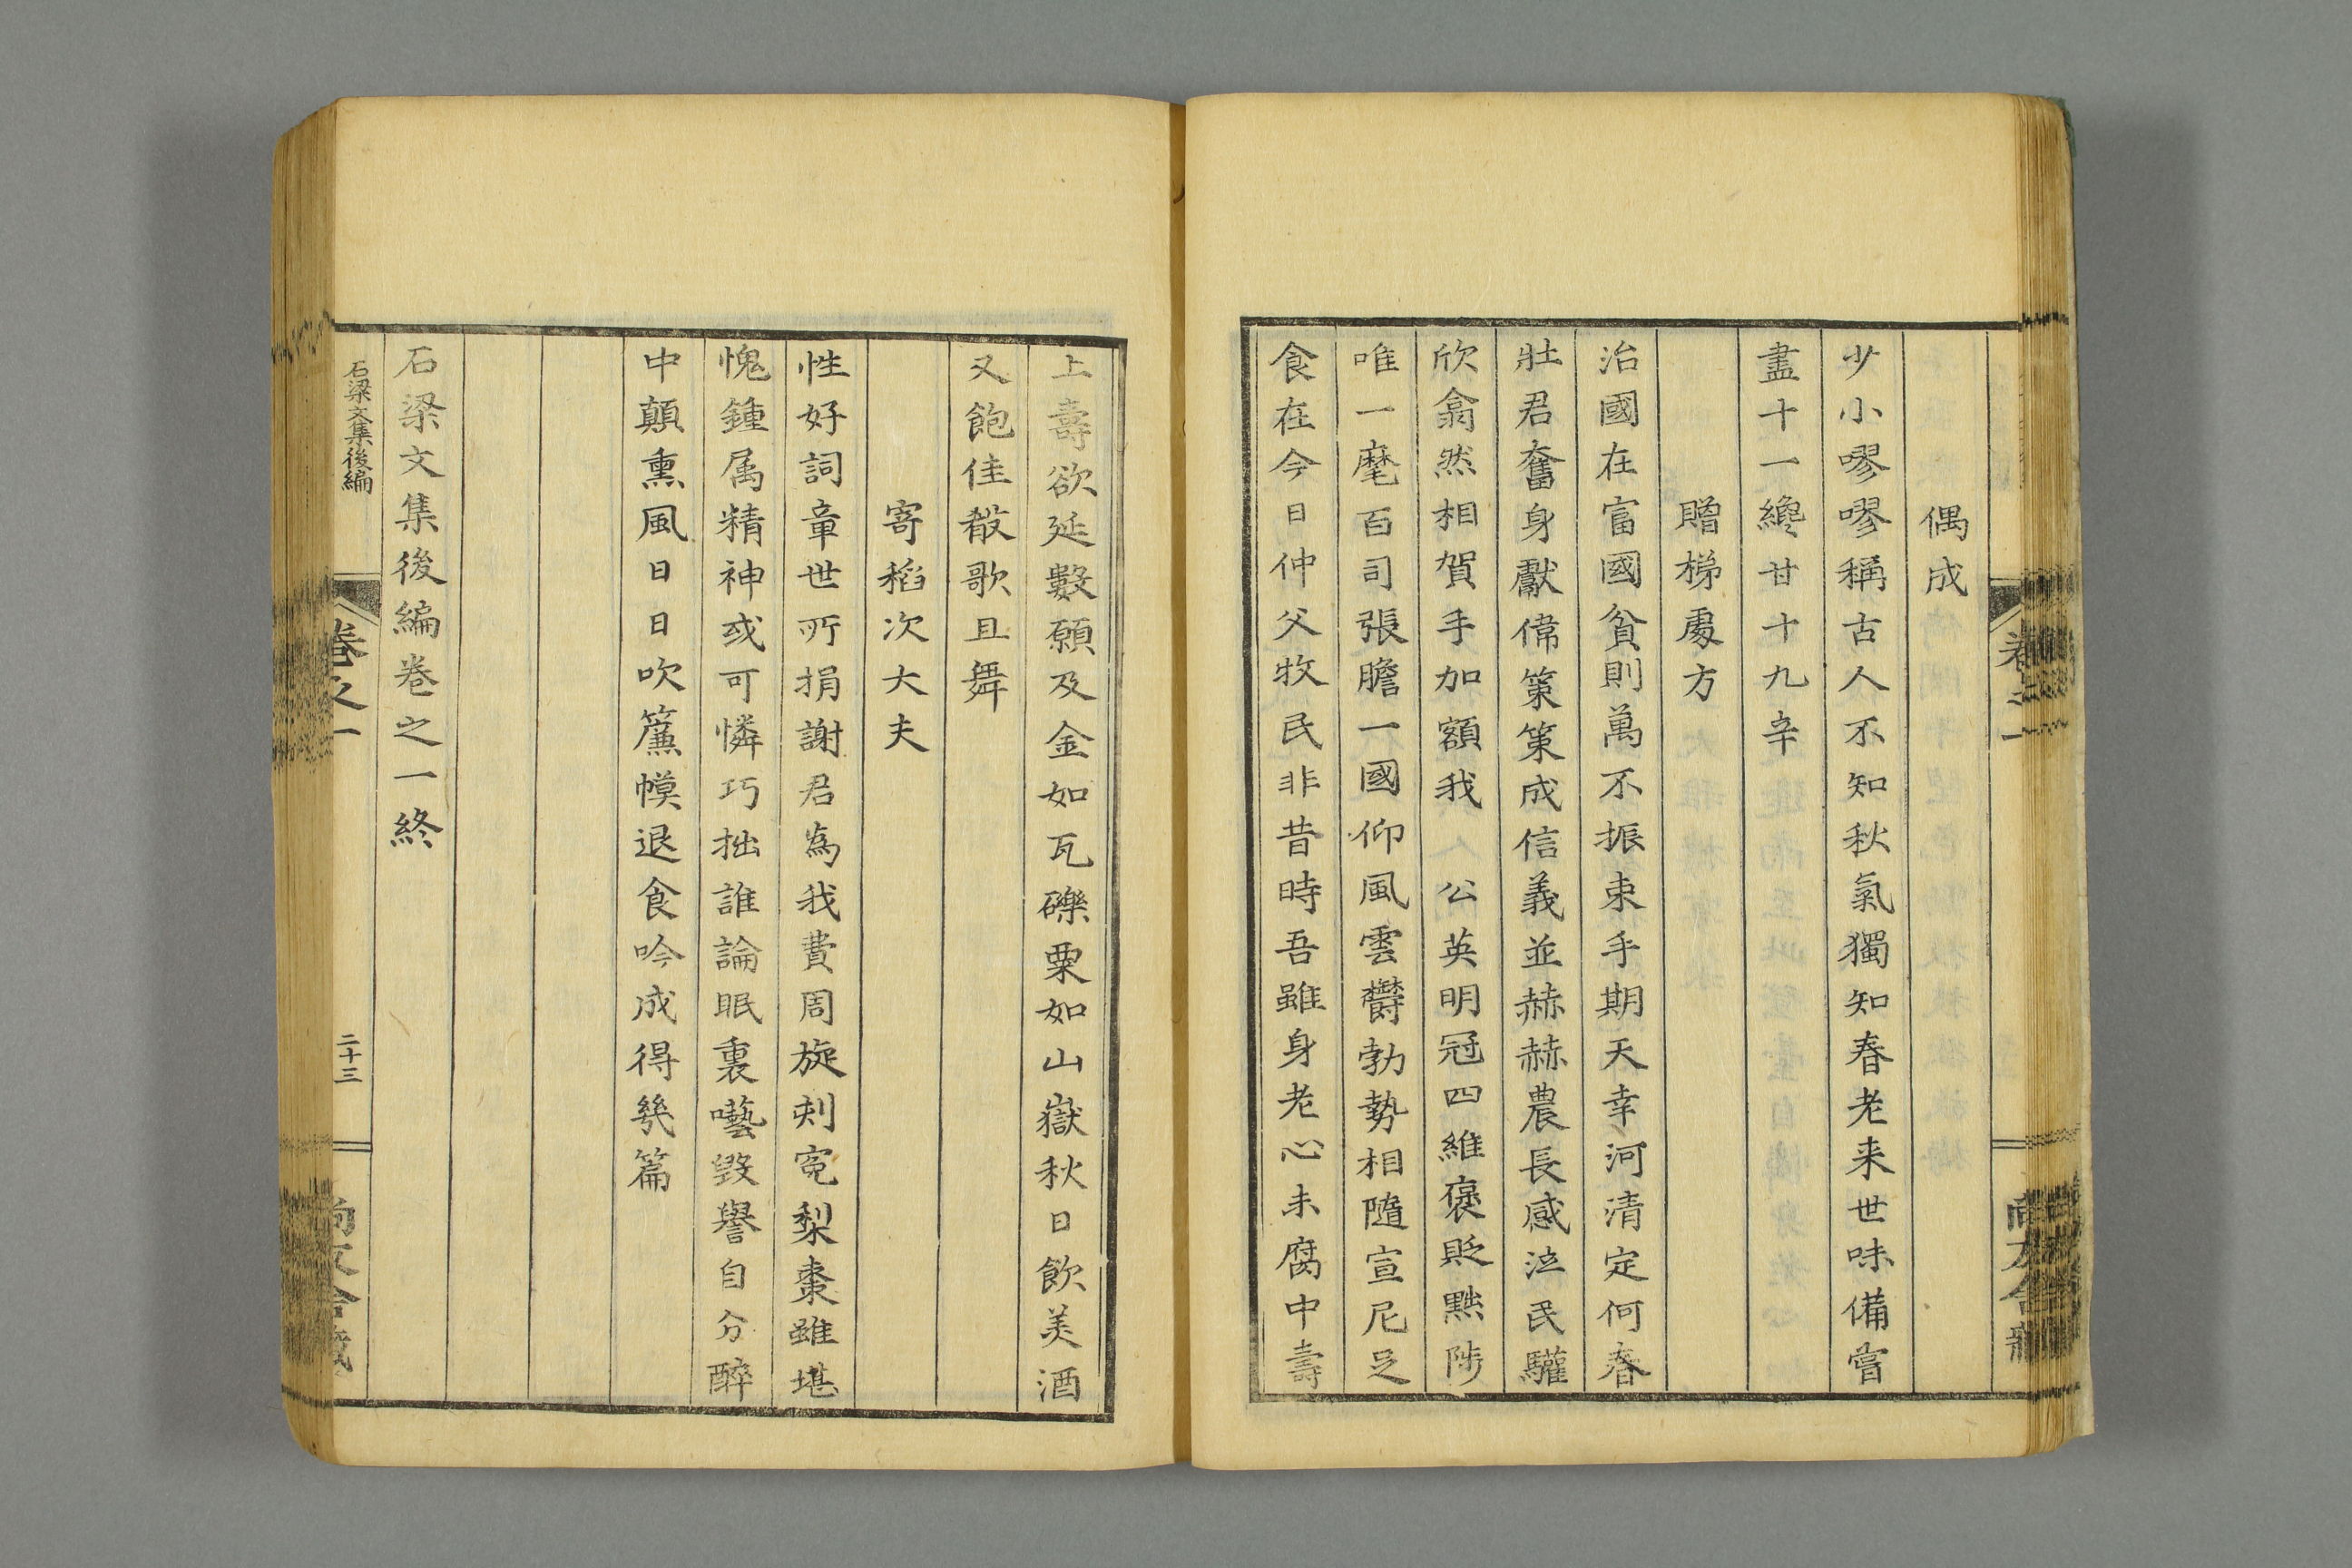 偶成
少小嘐嘐稱古人不知秋氣獨知春老来世味備嘗
盡十一纔甘十九辛
贈梯處方
治國在富國貧則萬不振束手期天幸河清定何春
壮君奮身獻偉策策成信義並赫赫農長感泣民驩
欣翕然相賀手加額我公英明冠四維褒貶黜陟
唯一麾百司張膽一國仰風雲欝勃勢相隨宣尼足
食在今日仲父牧民非昔時吾雖身老心未腐中壽
上壽欲延數願及金如瓦礫粟如山嶽秋日飲美酒
又飽佳殽歌且舞
寄稻次大夫
性好詞章世所捐謝君為我費周旋刺寃梨棗雖堪
愧鍾属精神或可憐巧拙誰論眠裏囈毀譽自分醉
中顛熏風日日吹簾幙退食吟成得幾篇
石梁文集後編卷之一終
石梁文集後編
卷之一
二十三